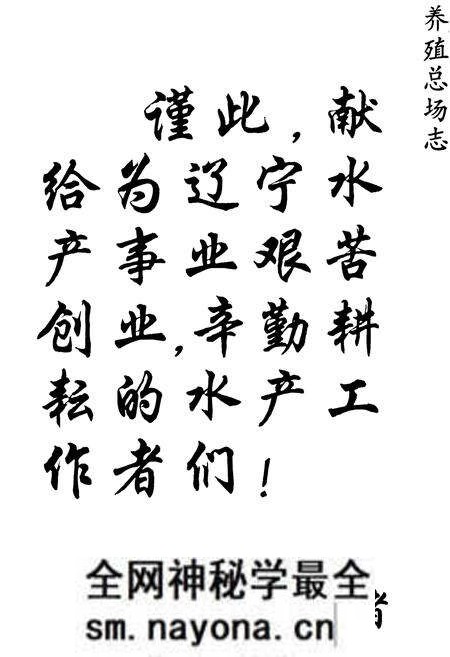 养殖总场志
谨此,献
给为辽宁水
产事业艰苦
创业,辛勤耕
耘的水产工
作者们!
全网神秘学最全
sm.nayona.cn